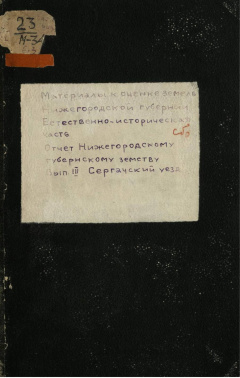 23
Материалы к оценке земель
Нижегородской губернии
Естественно-историческая
часть
Отчет Нижегородскому
губернскому земству
Вып. III Сергачский уезд